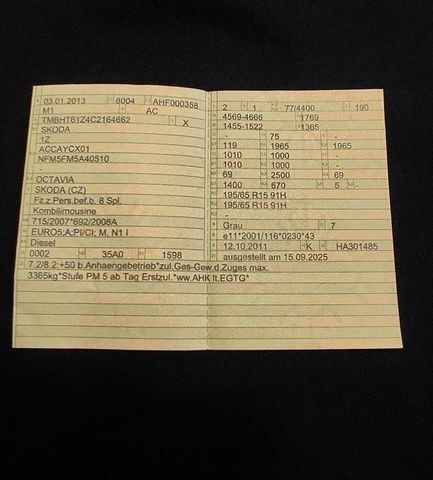 03.01.2013 8004 AHF000358
M1 AC
TMBHT61Z4C2164662 X
SKODA
1Z
ACCAYCX01
NFM5FM5A40510
-
OCTAVIA
SKODA (CZ)
Fz.z.Pers.bef.b. 8 Spl.
Kombilimousine
715/2007*692/2008A
EURO5;A;PI/CI; M, N1 I
Diesel
0002 35A0 1598
7.2/8.2:+50 b.Anhaengebetrieb*zul.Ges-Gew.d Zuges max.
3365kg*Stufe PM 5 ab Tag Erstzul.*ww.AHK lt.EGTG*
2 1 77/4400 190
4569-4668 1769
1455-1522 1365
- 75 -
119 1965 1965
1010 1000 -
1010 1000 -
69 2500 69
1400 670 5 -
195/65 R15 91H
195/65 R15 91H
-
Grau 7
e11*2001/116*0230*43
12.10.2011 K HA301485
ausgestellt am 15.09.2025